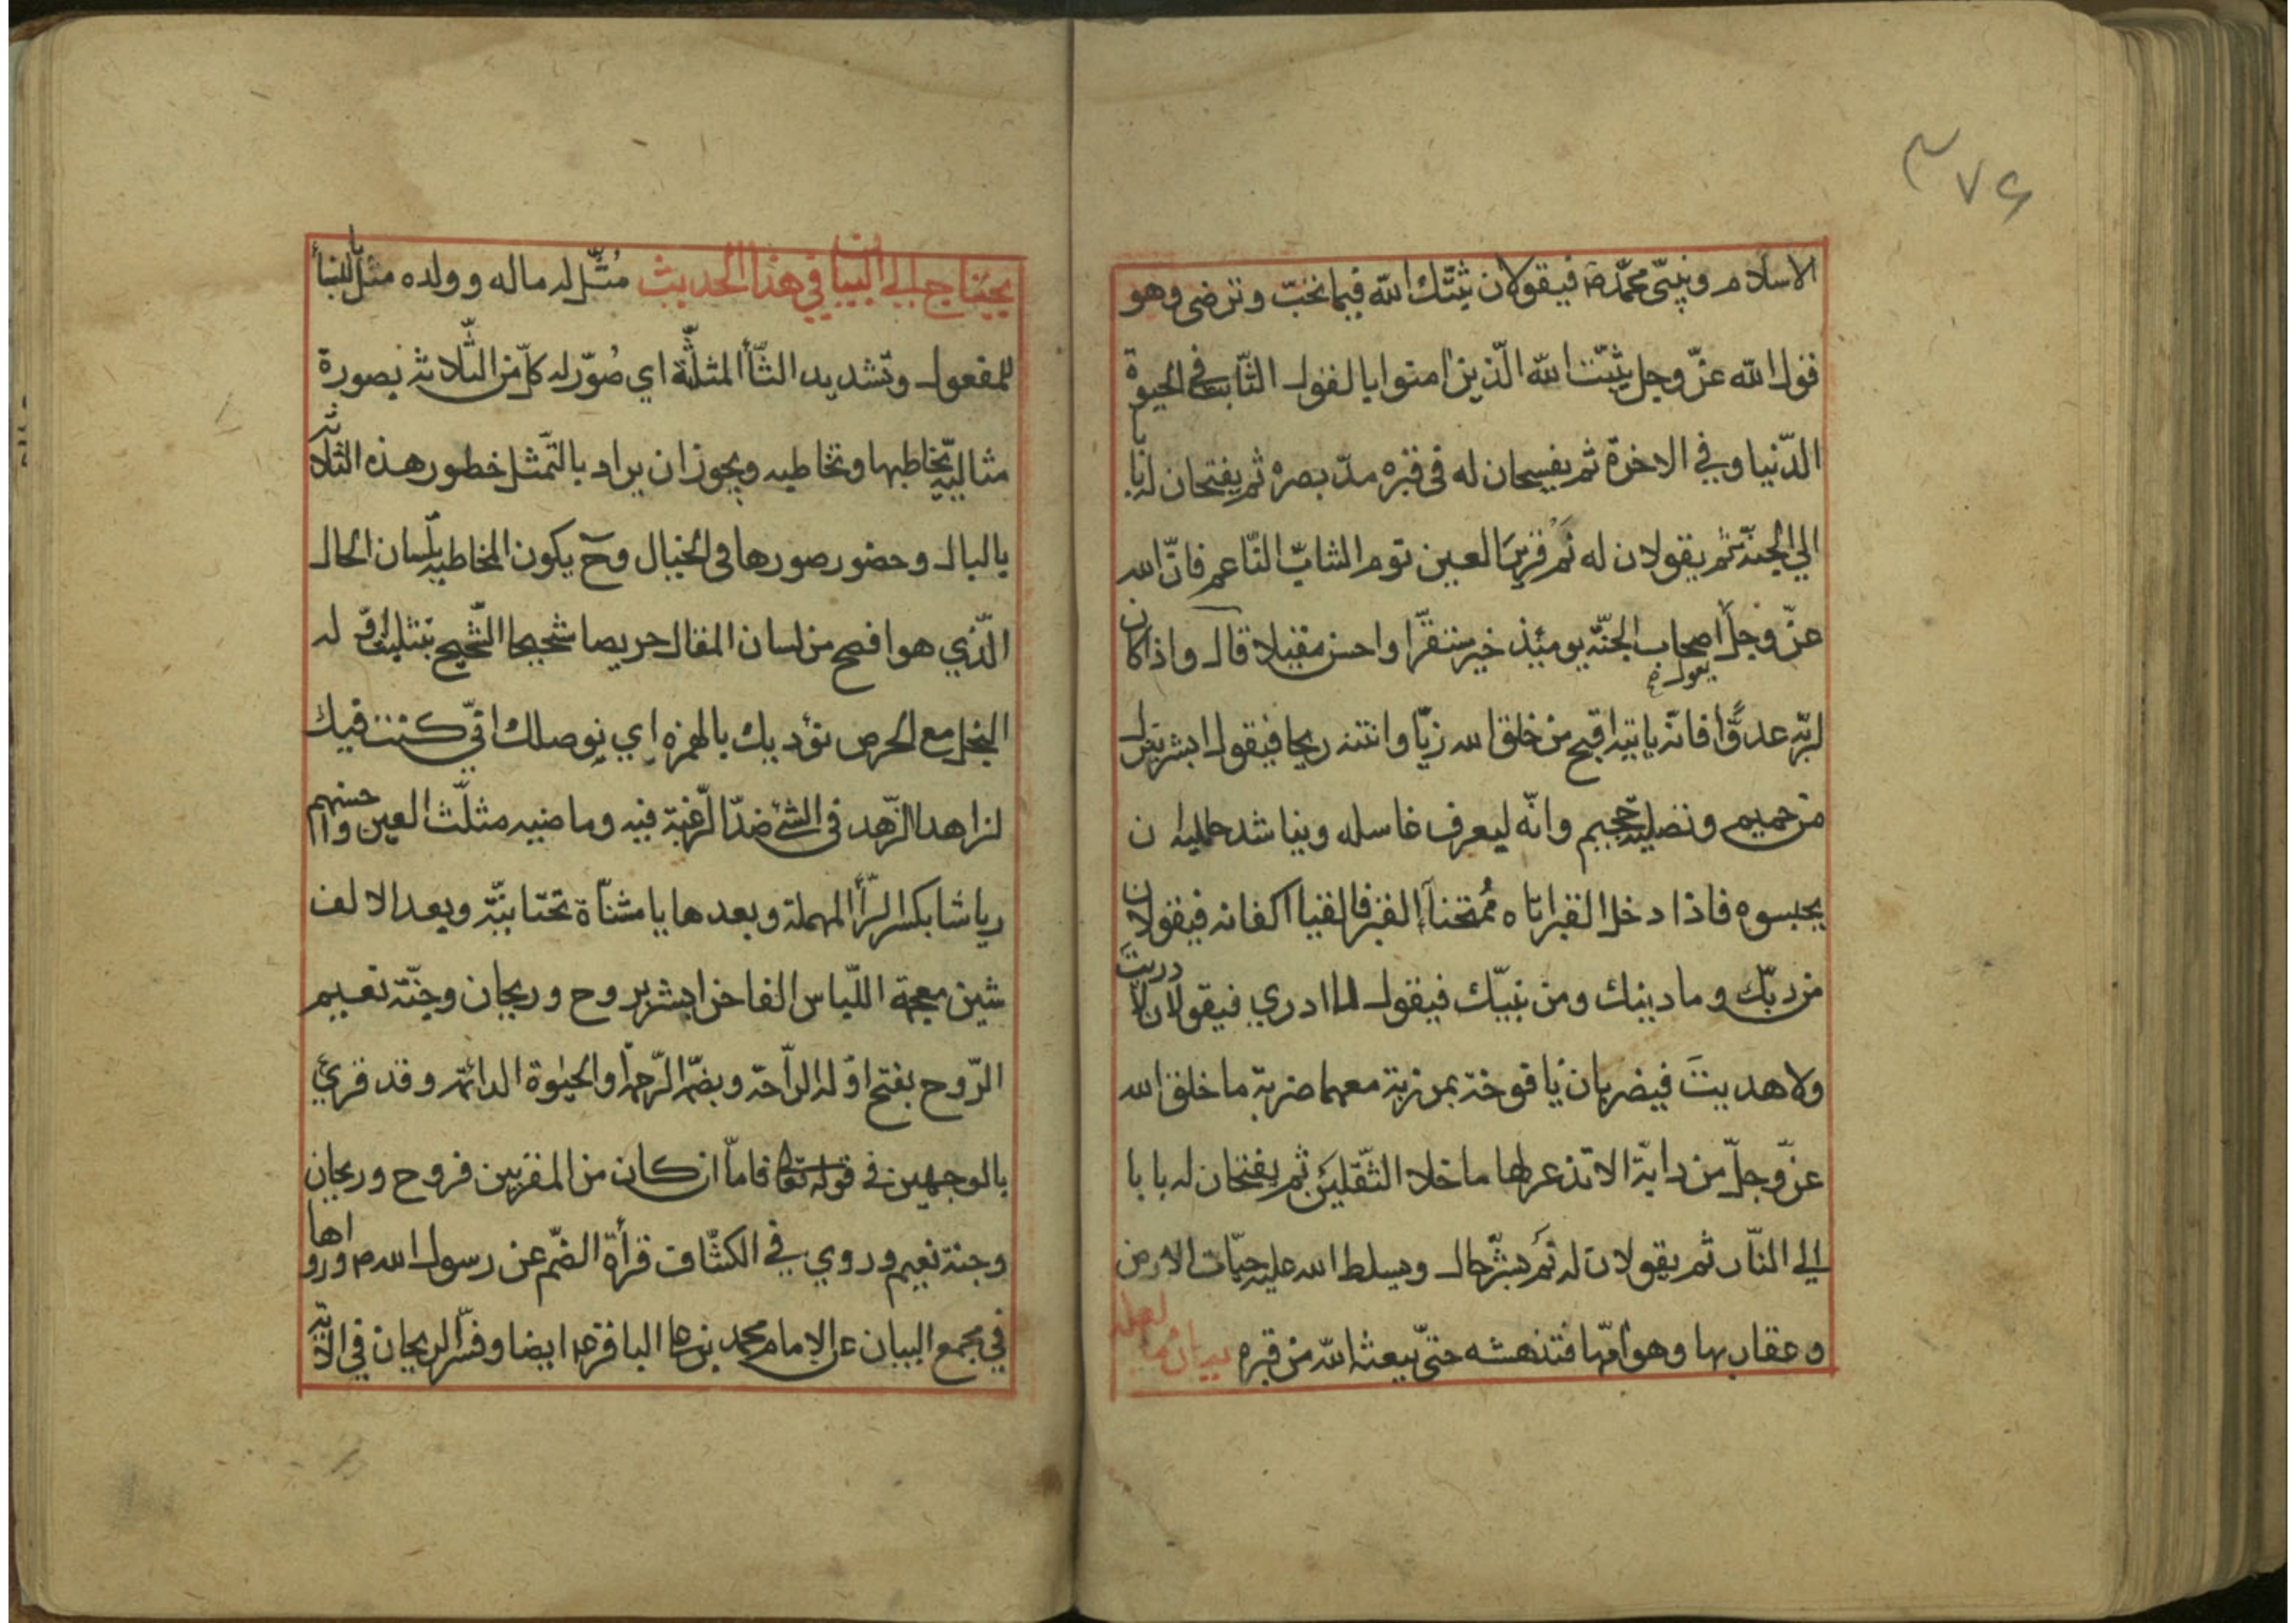 ۳۷۶
الاسلام ونبيّي محمّد ص فيقولان ثبّتك الله فيما تحبّ وترضى وهو
قول الله عزّ وجل يثبّت الله الّذين امنوا بالقول الثّابت في الحيوة
الدّنيا وفي الاخرة ثم يفسحان له في قبره مدّ بصره ثم يفتحان له بابا
الي الجنّة ثم يقولان له نَمْ قرير العين نوم الشابّ النّاعم فانّ الله
عزّ وجلّ اصحاب الجنّة يومئذ خير مستقرّا واحسن مقيلا قال واذا كان
يقول
لربّه عدوًّا فانّه ياتيه اقبح من خلق الله زيّا وانتنه ريحا فيقول ابشر بنزل
من حميم وتصلية جحيم وانّه ليعرف غاسله ويناشد حامليه ان
يحبسوه فاذا دخل القبر اتاه مُمتحنا القبر فالقيا اكفانه فيقولان
من ربّك وما دينك ومن نبيّك فيقول لا ادري فيقولان لا دريت
ولا هديتَ فيضربان يافوخه بمرزبة معهما ضربة ما خلق الله
عزّ وجلّ من دابّة الا تذعر لها ما خلا الثّقلين ثم يفتحان له بابا
الي النّار ثم يقولان له نَم بشرّ حال ويسلط الله عليه حيّات الارض
وعقاربها وهوامّها فتنهشه حتىّ يبعثه الله من قبره بيان ما لعله
يحتاج الي البيان في هذا الحديث مُثّل له ماله وولده مثّل بالبنأ
للمفعول وتشديد الثّأ المثلّثة اي صُوّر له كلّ من الثّلاثة بصورة
مثالية يخاطبها وتخاطبه ويجوز ان يراد بالتّمثل خطور هذه الثلاثة
بالبال وحضور صورها في الخيال وح يكون المخاطبة بلسان الحال
الّذي هو افصح من لسان المقال حريصا شحيحا الشّحيح بتثليث اوّله
البخل مع الحرص نؤديك بالهمزه اي نوصلك انّي كنت فيك
لزاهدا الزّهد في الشئ ضدّ الرّغبة فيه وماضيه مثلّث العين واحسنهم
رياشا بكسر الرّأ المهملة وبعدها يا مثنّاة تحتانيّة وبعد الالف
شين معجمة اللّباس الفاخر ابشر بروح وريحان وجنّة نعيم
الرّوح بفتح اوّله الرّاحة وبضمّه الرّحمة والحيٰوة الدائمة وقد قرئ
بالوجهين في قوله تعالى فامّا ان كان من المقربين فروح وريحان
وجنة نعيم وروي في الكشّاف قرأة الضّم عن رسول الله ص ورواها
في مجمع البيان عن الامام محمد بن علي الباقر ع ايضا وفسّر الريحان في الاية